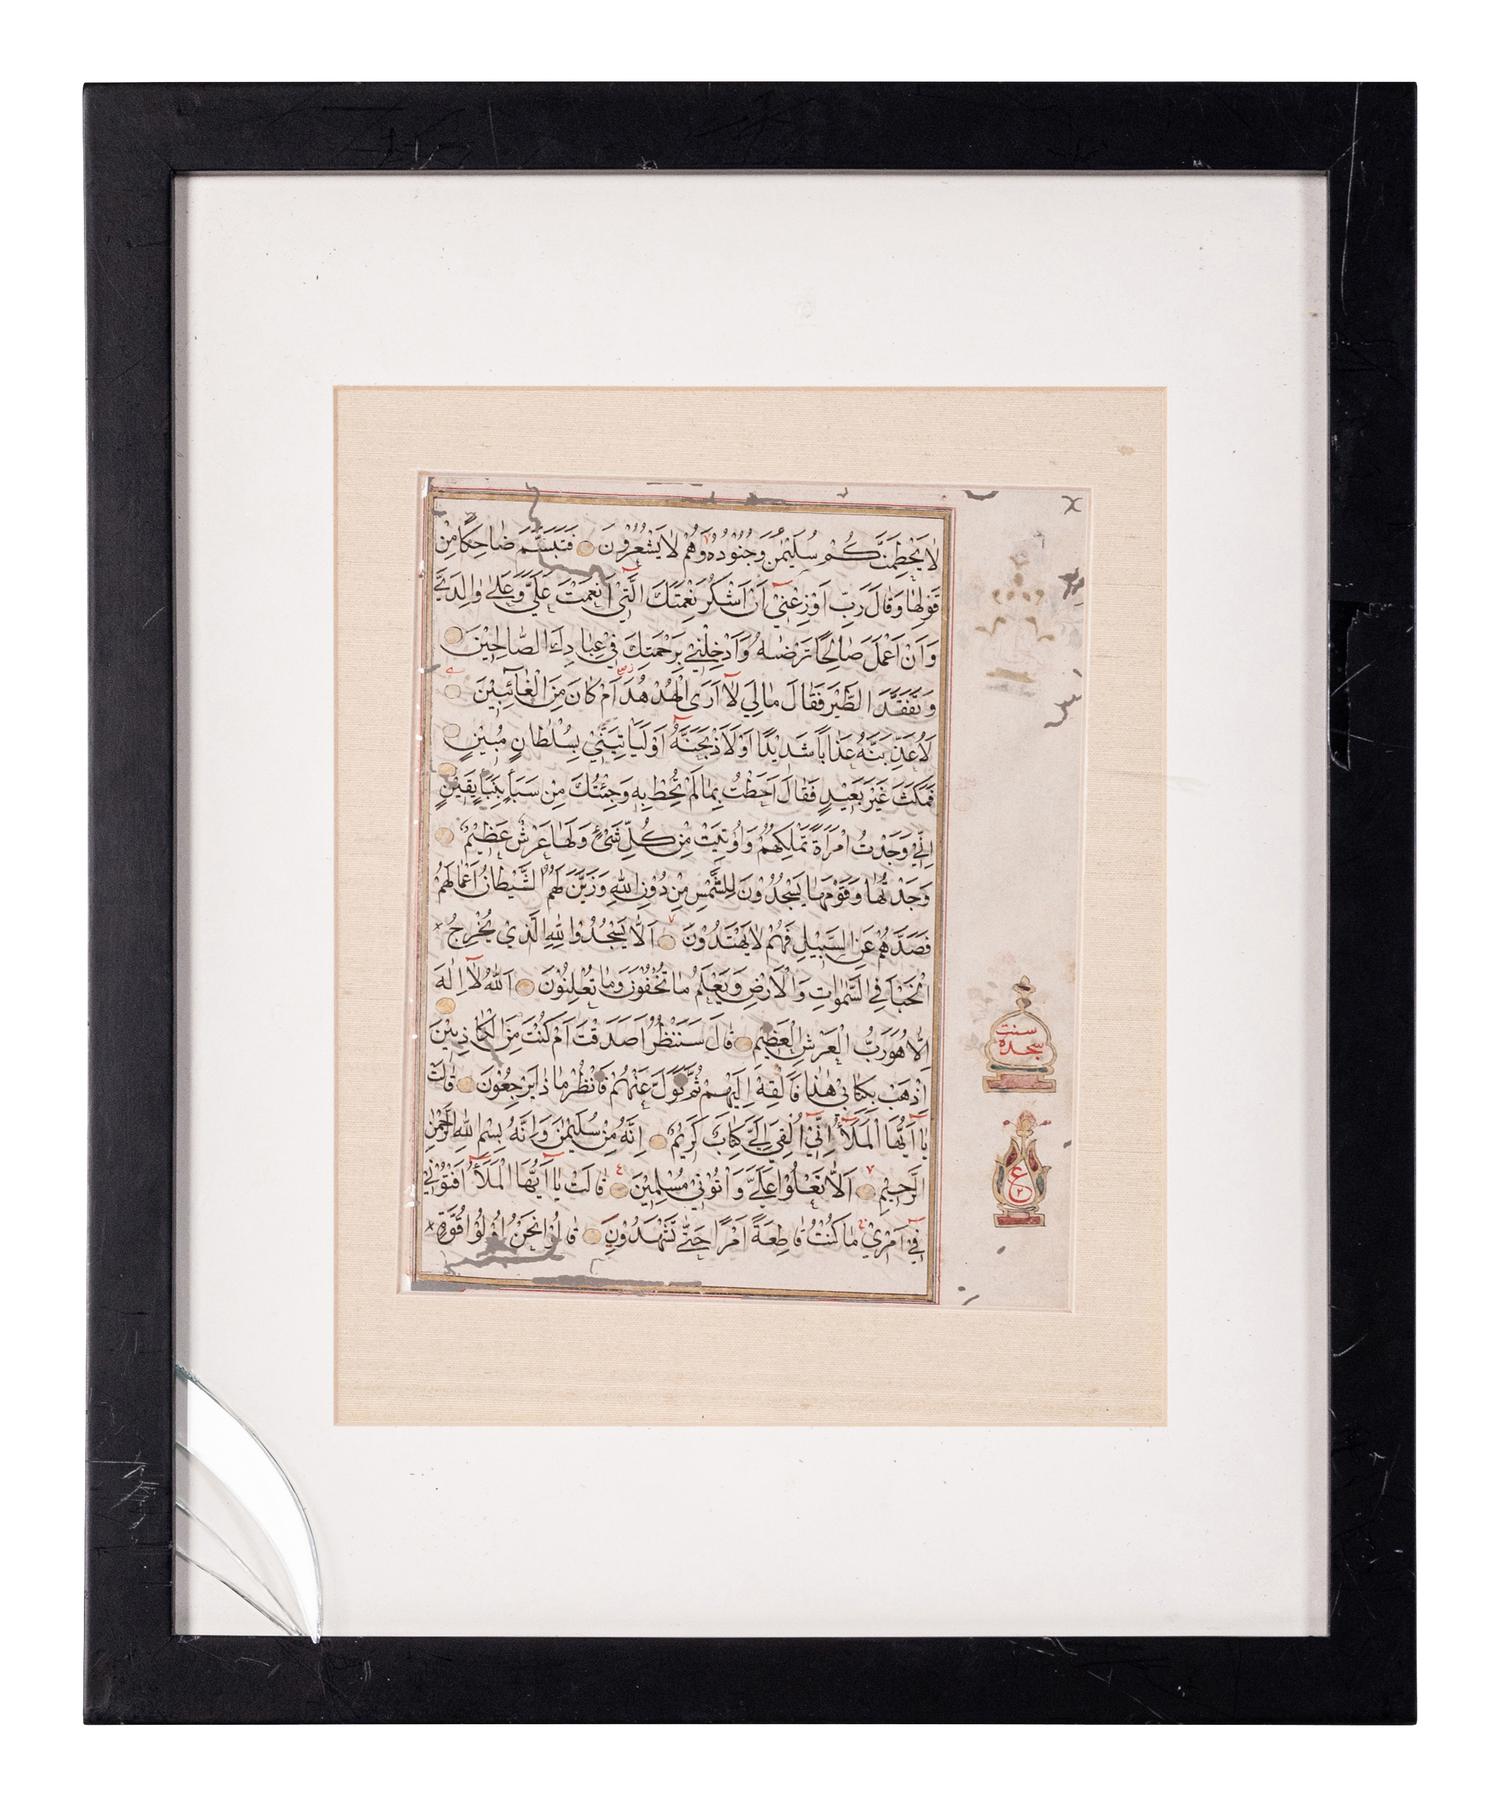 لَا يَحْطِمَنَّكُمْ سُلَيْمٰنُ وَجُنُودُهُ وَهُمْ لَا يَشْعُرُونَ فَتَبَسَّمَ ضَاحِكًا مِنْ
قَوْلِهَا وَقَالَ رَبِّ اَوْزِعْنِيْ اَنْ اَشْكُرَ نِعْمَتَكَ الَّتِيْ اَنْعَمْتَ عَلَيَّ وَعَلٰى وَالِدَيَّ
وَاَنْ اَعْمَلَ صَالِحًا تَرْضٰىهُ وَاَدْخِلْنِيْ بِرَحْمَتِكَ فِيْ عِبَادِكَ الصَّالِحِيْنَ
وَتَفَقَّدَ الطَّيْرَ فَقَالَ مَالِيَ لَا اَرَى الْهُدْهُدَ اَمْ كَانَ مِنَ الْغَائِبِيْنَ
لَاُعَذِّبَنَّهُ عَذَابًا شَدِيْدًا اَوْ لَاَذْبَحَنَّهُ اَوْ لَيَاْتِيَنِّيْ بِسُلْطَانٍ مُبِيْنٍ
فَمَكَثَ غَيْرَ بَعِيْدٍ فَقَالَ اَحَطْتُ بِمَا لَمْ تُحِطْ بِهٖ وَجِئْتُكَ مِنْ سَبَأٍ بِنَبَأٍ يَقِيْنٍ
اِنِّيْ وَجَدْتُ امْرَاَةً تَمْلِكُهُمْ وَاُوْتِيَتْ مِنْ كُلِّ شَيْءٍ وَلَهَا عَرْشٌ عَظِيْمٌ
وَجَدْتُهَا وَقَوْمَهَا يَسْجُدُوْنَ لِلشَّمْسِ مِنْ دُوْنِ اللّٰهِ وَزَيَّنَ لَهُمُ الشَّيْطَانُ اَعْمَالَهُمْ
فَصَدَّهُمْ عَنِ السَّبِيْلِ فَهُمْ لَا يَهْتَدُوْنَ اَلَّا يَسْجُدُوْا لِلّٰهِ الَّذِيْ يُخْرِجُ
الْخَبْأَ فِي السَّمٰوَاتِ وَالْاَرْضِ وَيَعْلَمُ مَا تُخْفُوْنَ وَمَا تُعْلِنُوْنَ اَللّٰهُ لَا اِلٰهَ
اِلَّا هُوَ رَبُّ الْعَرْشِ الْعَظِيْمِ قَالَ سَنَنْظُرُ اَصَدَقْتَ اَمْ كُنْتَ مِنَ الْكَاذِبِيْنَ
اِذْهَبْ بِكِتَابِيْ هٰذَا فَاَلْقِهْ اِلَيْهِمْ ثُمَّ تَوَلَّ عَنْهُمْ فَانْظُرْ مَاذَا يَرْجِعُوْنَ قَالَتْ
يَا اَيُّهَا الْمَلَأُ اِنِّيْ اُلْقِيَ اِلَيَّ كِتَابٌ كَرِيْمٌ اِنَّهُ مِنْ سُلَيْمٰنَ وَاِنَّهُ بِسْمِ اللّٰهِ الرَّحْمٰنِ
الرَّحِيْمِ اَلَّا تَعْلُوْا عَلَيَّ وَاْتُوْنِيْ مُسْلِمِيْنَ قَالَتْ يَا اَيُّهَا الْمَلَأُ اَفْتُوْنِيْ
فِيْ اَمْرِيْ مَا كُنْتُ قَاطِعَةً اَمْرًا حَتّٰى تَشْهَدُوْنِ قَالُوْا نَحْنُ اُولُوْا قُوَّةٍ
سنت
سجده
ع
٢